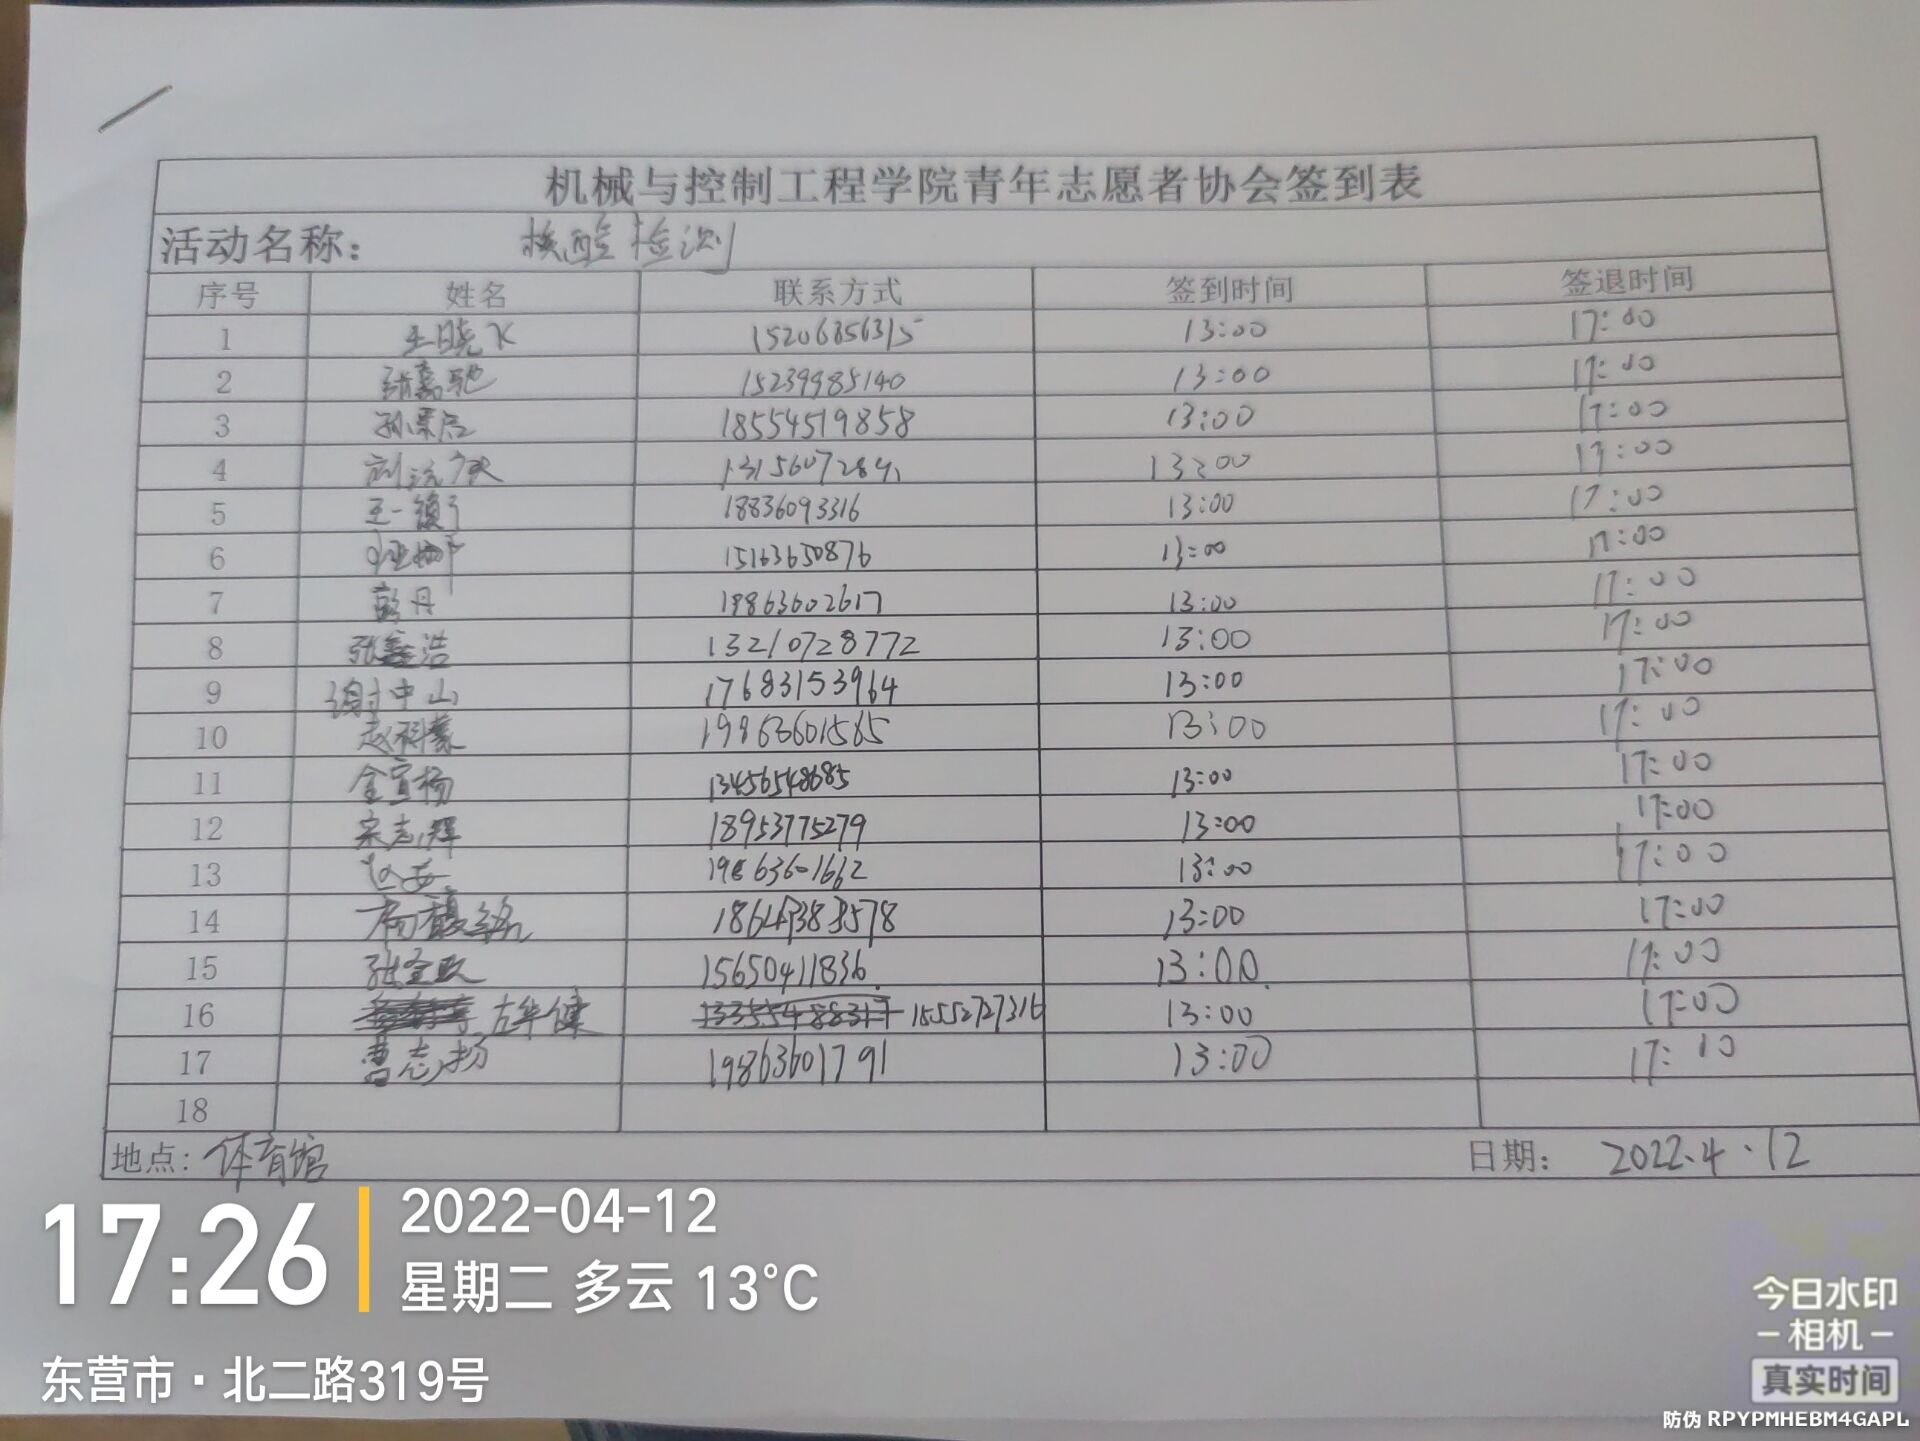 机械与控制工程学院青年志愿者协会签到表
活动名称: 核酸检测
序号 姓名 联系方式 签到时间 签退时间
1 王晓飞 15206856315 13:00 17:00
2 张嘉驰 15239985140 13:00 17:00
3 孙景启 18554519858 13:00 17:00
4 13:00 17:00
5 18836093316 13:00 17:00
6 15163650876 13:00 17:00
7 彭丹 19863602617 13:00 17:00
8 张鑫浩 13210728772 13:00 17:00
9 谢中山 17683153964 13:00 17:00
10 19863601585 13:00 17:00
11 金宣杨 13456548685 13:00 17:00
12 宋志辉 18953775279 13:00 17:00
13 19863601662 13:00 17:00
14 13:00 17:00
15 张金政 15650411836 13:00 17:00
16 左华健 15552727316 13:00 17:00
17 曹志扬 19863601791 13:00 17:10
18
地点: 体育馆 日期: 2022.4.12
17:26
2022-04-12
星期二 多云 13°C
东营市·北二路319号
今日水印
-相机-
真实时间
防伪 RPYPMHEBM4GAPL